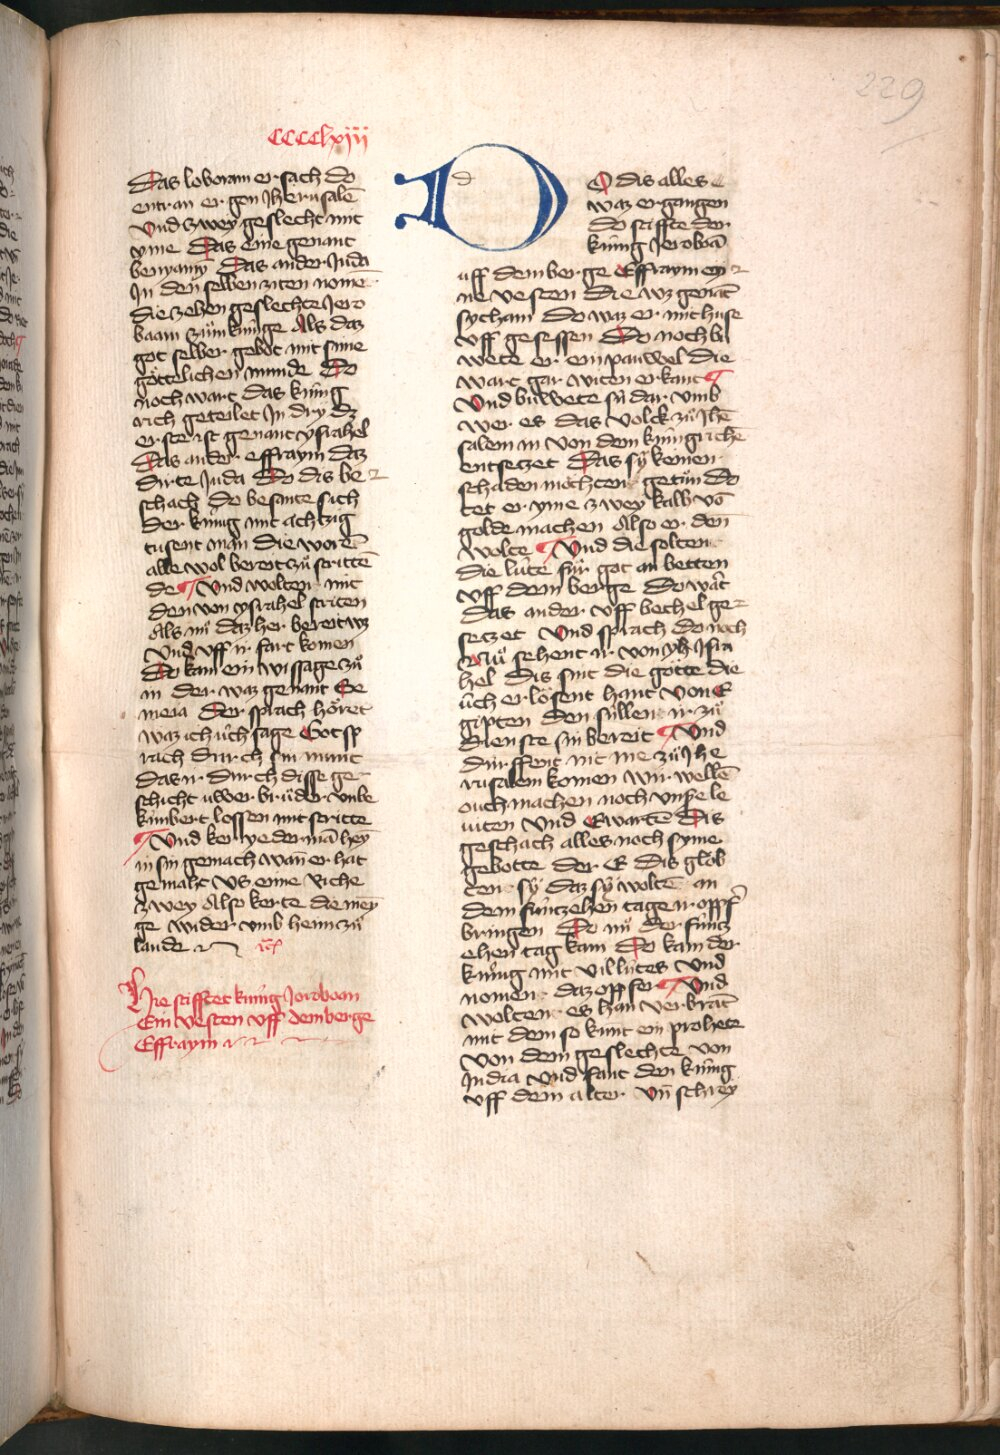 229
CCCClxiii
Das loboram er sach do
entran er gen Jherusalē
Vnd zwey geslecht mit
yme Das eine genant
benyamÿ Das ander Juda
In den selben ziten nomē
die zehen geslechte Jero
baam zům kúnige Als daz
got selber gebot mit sime
göttelichen munde Do
noch wart das kúnig
rich geteilet In drÿ dz
erste ist genant ysrahel
Das ander effraym daz
dirte Juda Do dis be
schach do besante sich
der kúnig mit achtzig
tusent man die worē
alle wol bereit zů strittē
de Vnd wolten mit
den von ysrahel striten
Als nů daz her bereit wz
Vnd vff ir fart komen
Do kam ein wissage zů
in der waz genant Se
meia Der sprach höret
waz ich úch sage Got sp
rach durch sin munt
das ir durch disse ge
schicht uwer brüder vnbe
kúmbert lossen mit stritte
Vnd ker yederman heÿ
in sin gemach wan er hat
gemaht vs eime riche
zwey Also kerte die mēÿ
ge wider vmb heim zů
lande
Hie stifftet kúnig Jeroboan
Ein vesten vff dem berge
Effraym
d
O dis alles
waz ergangen
do stiffte der
kúnig Jeroboā
uff dem berge Effraym ey
ne vesten die wz genāt
sycham do waz er mit huse
vff gesessen Do noch bu
wete er ein panwel die
wart gar witen erkant
Vnd buwete sú dar vmb
wer es das volck zů Jhe
salem in von dem kúnigriche
entsetzet Das sÿ keinen
schaden möchten getůn do
tet er yme zwey kalb vō
golde machen Also er den
wolte Vnd die solten
die lúte fúr got an betten
vff dem berge do wāt
das ander vff bechel ge
setzet Vnd sprach do noch
Nů sehent ir von yh Jsra
hel dis sint die götte die
úch erlösent hant von E
gipten den súllen ir zů
dienste sin bereit Vnd
dúrffent nit me zů Jhe
rusalem komen wir wellē
ouch machen noch vnß le
uiten vnd Ewartē Dis
geschach alles noch syme
gebotte der E Dis glob
ten sÿ daz sÿ woltē an
dem fúnfzehen tage ir oppf
bringen Do nů der fúnfz
ehen tag kam Do kam der
kúnig mit vil lútes Vnd
nomen daz oppfer Vnd
wolten es han verbrāt
mit dem so kunt ein prohete
von dem geslechte von
Judia vnd fant den kúnig
vff dem alter Vn̄ schrey